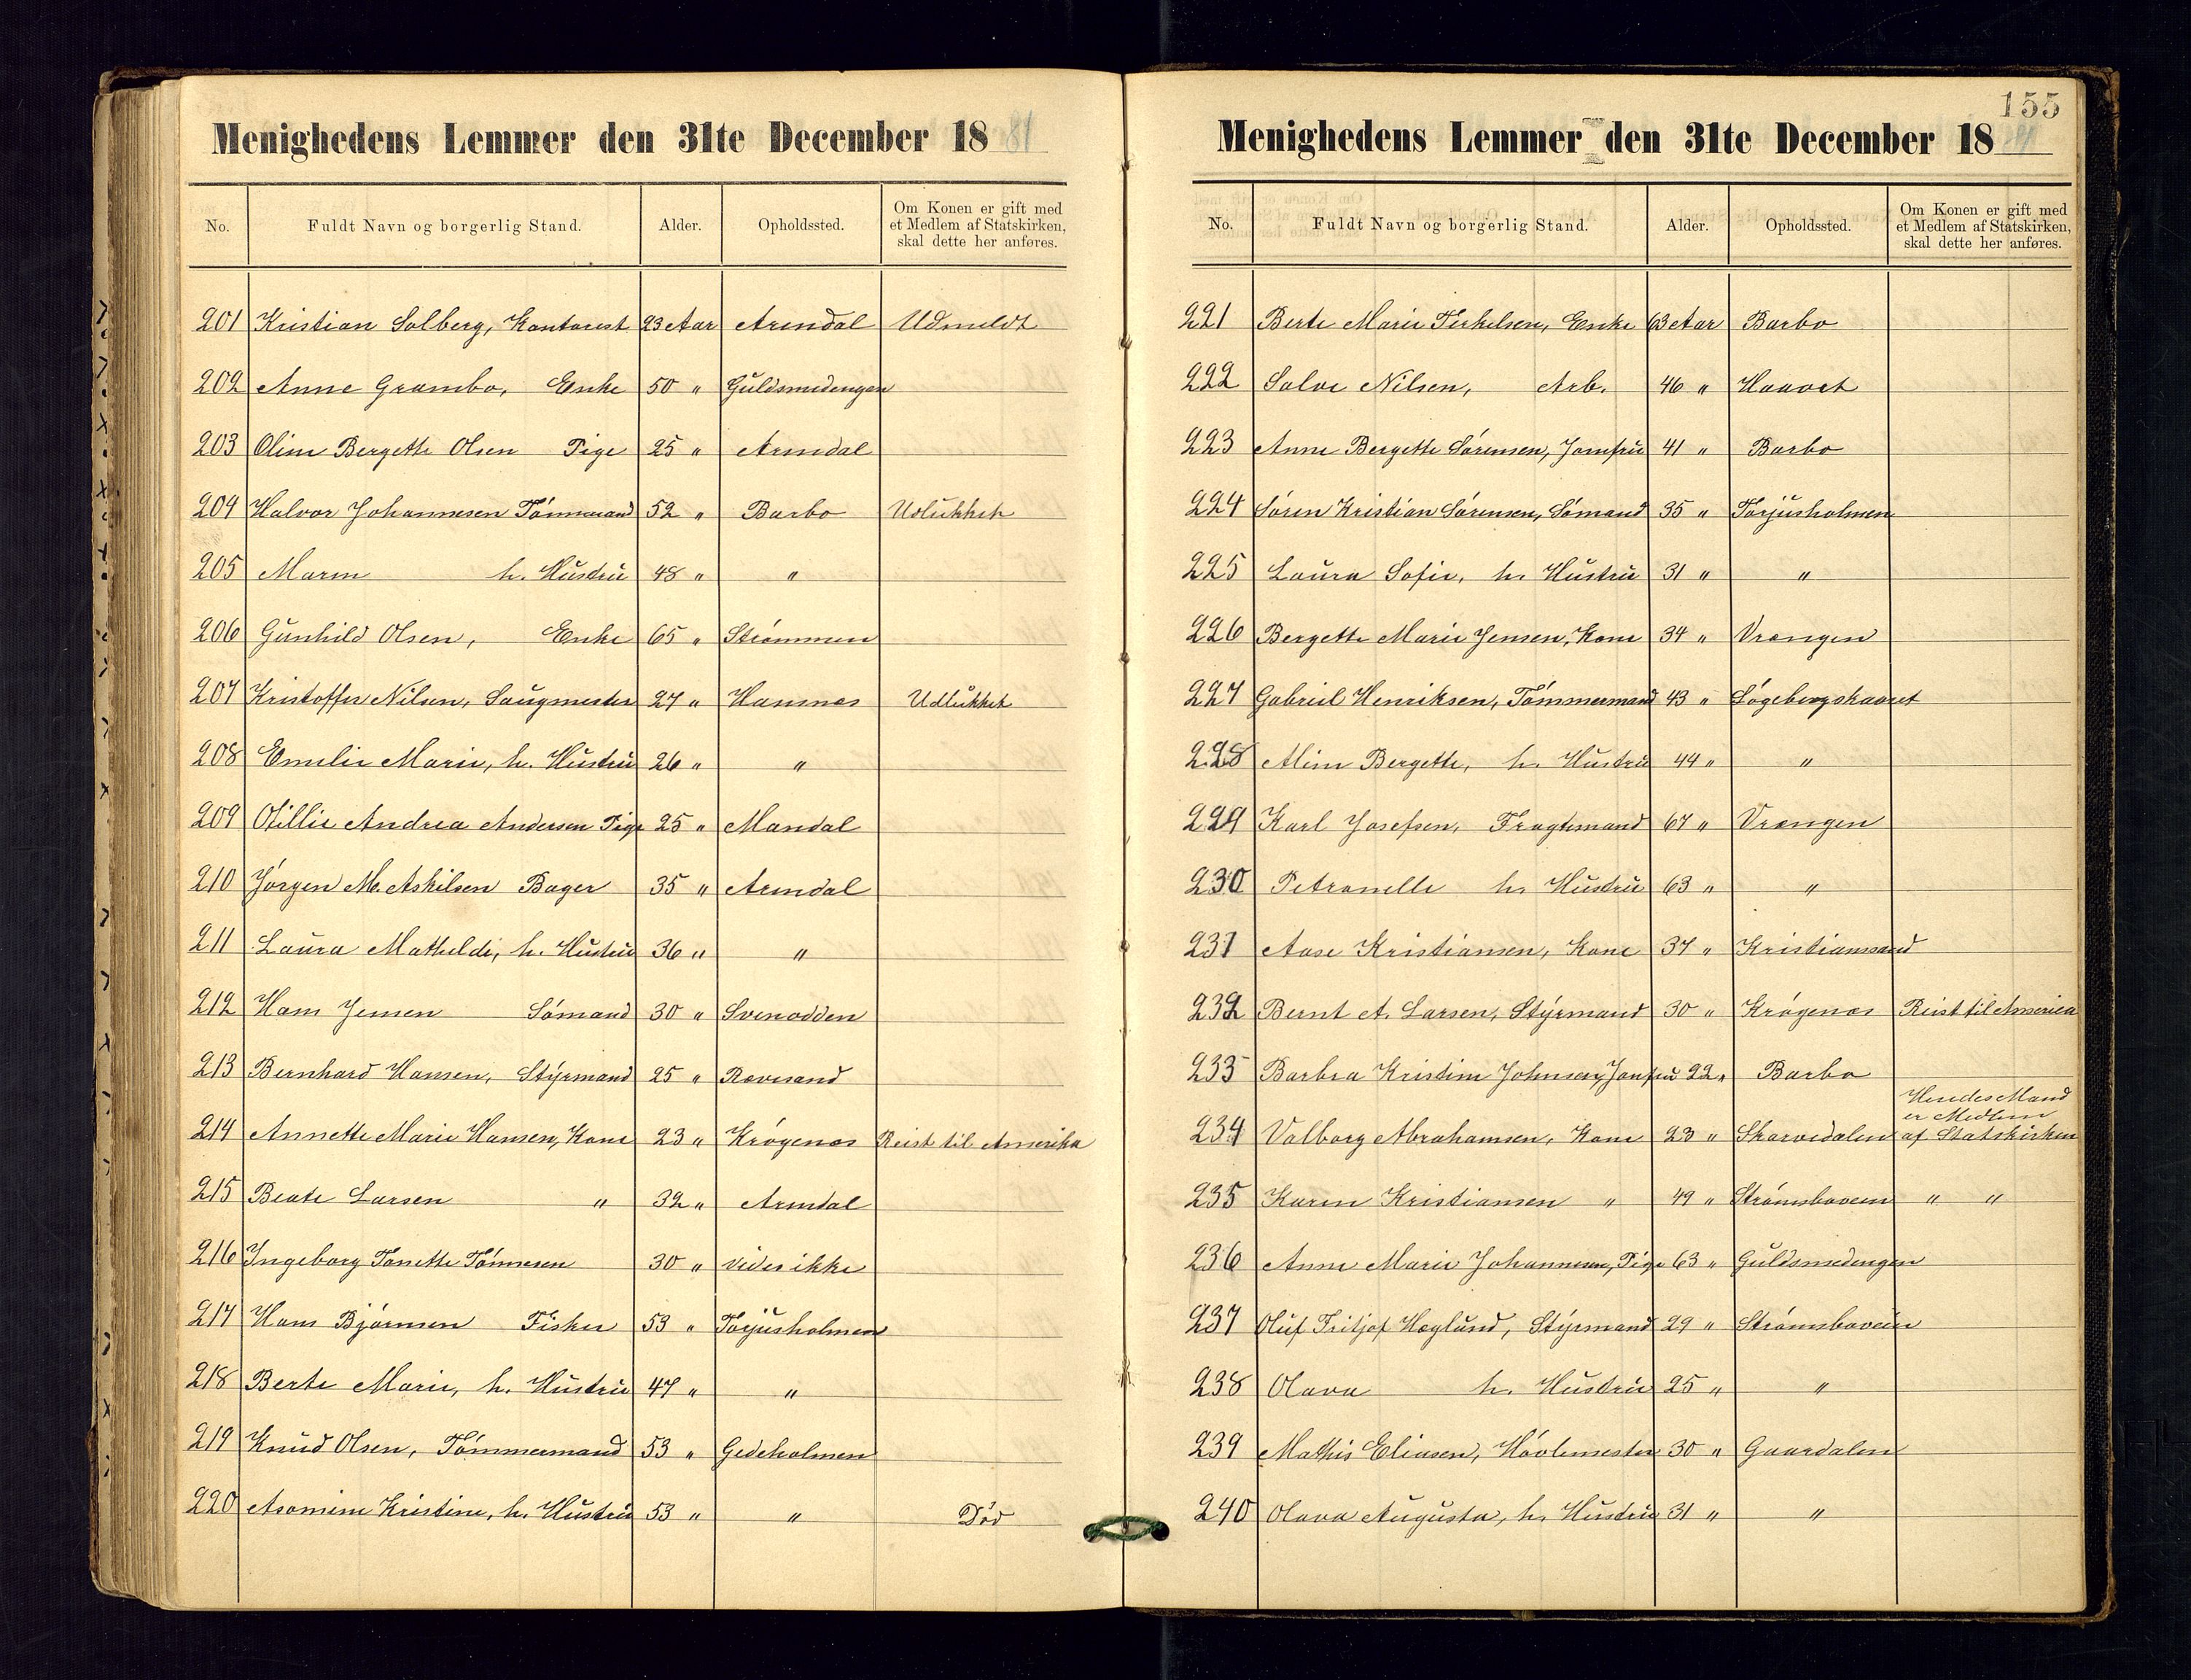 Menighedens Lemmer den 31te December 1881
No. Fuldt Navn og borgerlig Stand. Alder. Opholdssted. Om Konen er gift med et Medlem af Statskirken, skal dette her anføres.
201 Kristian Solberg, Kontorist 23 Aar Arendal Udmeldt
202 Anne Grambo, Enke 50 " Guldsmedengen
203 Oline Bergette Olsen Pige 25 " Arendal
204 Halvor Johannesen Tömmand 52 " Barbo Udlukket
205 Maren h. Hustru 48 " "
206 Gunhild Olsen, Enke 65 " Strømmen
207 Kristoffer Nilsen, Saugmester 27 " Hamnæs Udlukket
208 Emelie Marie, h. Hustru 26 " "
209 Otillie Andrea Andersen Pige 25 " Mandal
210 Jörgen M. Askilsen Bager 35 " Arendal
211 Laura Mathilde, h. Hustru 36 " "
212 Hans Jensen Sömand 30 " Svenodden
213 Bernhard Hansen, Styrmand 25 " Rævesand
214 Annette Marie Hansen, Kone 23 " Krögenæs Reist til Amerika
215 Beate Larsen " 32 " Arendal
216 Ingeborg Tonette Tönnesen 30 " vides ikke
217 Hans Björnsen Fisker 53 " Torjusholmen
218 Berte Marie, h. Hustru 47 " "
219 Knud Olsen, Tömmermand 53 " Gedeholmen
220 Asomine Kristine, h. Hustru 53 " " Död
155
Menighedens Lemmer den 31te December 1881
No. Fuldt Navn og borgerlig Stand. Alder. Opholdssted. Om Konen er gift med et Medlem af Statskirken, skal dette her anføres.
221 Berte Marie Terkelsen, Enke 63 Aar Barbo
222 Salve Nilsen, Arb. 46 " Haavet
223 Anne Bergette Sörensen, Jomfru 41 " Barbo
224 Sören Kristian Sörensen, Sömand 35 " Torjusholmen
225 Laura Sofie, h. Hustru 31 " "
226 Bergette Marie Jensen, Kone 34 " Vrængen
227 Gabriel Henriksen, Tömmermand 43 " Lögebergskaaret
228 Aline Bergette, h. Hustru 44 " "
229 Karl Josefsen, Fragtemand 67 " Vrængen
230 Petronelle h. Hustru 63 " "
231 Aase Kristiansen, Kone 37 " Kristiansand
232 Bernt A. Larsen, Styrmand 30 " Krögenæs Reist til America
233 Barbra Kristine Johnsen, Jomfru 22 " Barbo
234 Valborg Abrahamsen, Kone 23 " Skarvedalen Hendes Mand er Medlem af Statskirken
235 Karen Kristiansen " 49 " Strömsboveien " "
236 Anne Marie Johannesen, Pige 63 " Guldsmedengen
237 Oluf Fritjof Hæglund, Styrmand 29 " Strömsboveien
238 Olava h. Hustru 25 " "
239 Mathis Eliasen, Hövlemester 30 " Gaardalen
240 Olava Augusta, h. Hustru 31 " "